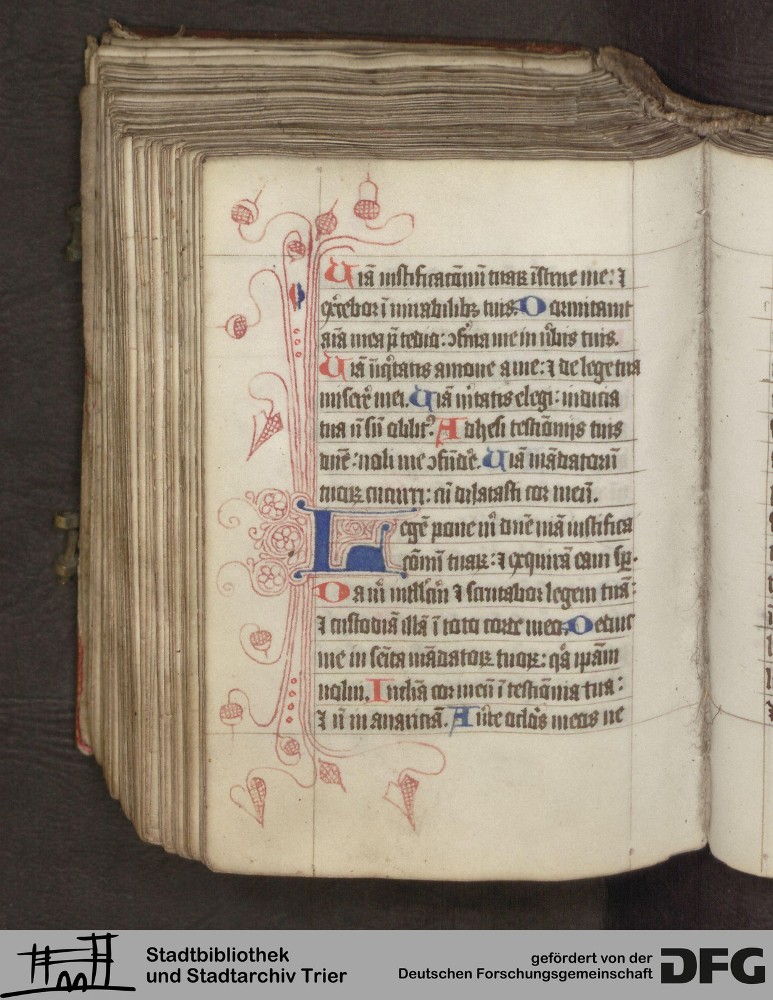 Uiā iustificationū tuaꝝ īstrue me: ⁊
ex̾cebor ī mirabilibꝫ tuis. Dormitauit
aīa mea p̄ tedio: ↄfirma me in ūbis tuis.
Uiā īiq̇tatis amoue a me: ⁊ de lege tua
miserē mei. Uiā ūitatis elegi: iudicia
tua nō sū oblit⁹. Adhesi testiōnijs tuis
dn̄e: noli me ↄfūdē. Uiā mādatorū
tuoꝝ cucurri: cū dilatasti cor meū.
Legē pone m̄ dn̄e uiā iustifica
cōnū tuaꝝ: ⁊ exquirā eam sp̄.
Da m̄ intll̄m ⁊ scrutabor legem tuā:
⁊ custodiā illā ī toto corde meo. Deduc
me in semita mādatoꝝ tuoꝝ: q̄a ipām
uolui. Inclīa cor meū ī testiōnia tua:
⁊ nō in auariciā. Auerte oclōs meos ne
Stadtbibliothek
und Stadtarchiv Trier
gefördert von der
Deutschen Forschungsgemeinschaft
DFG